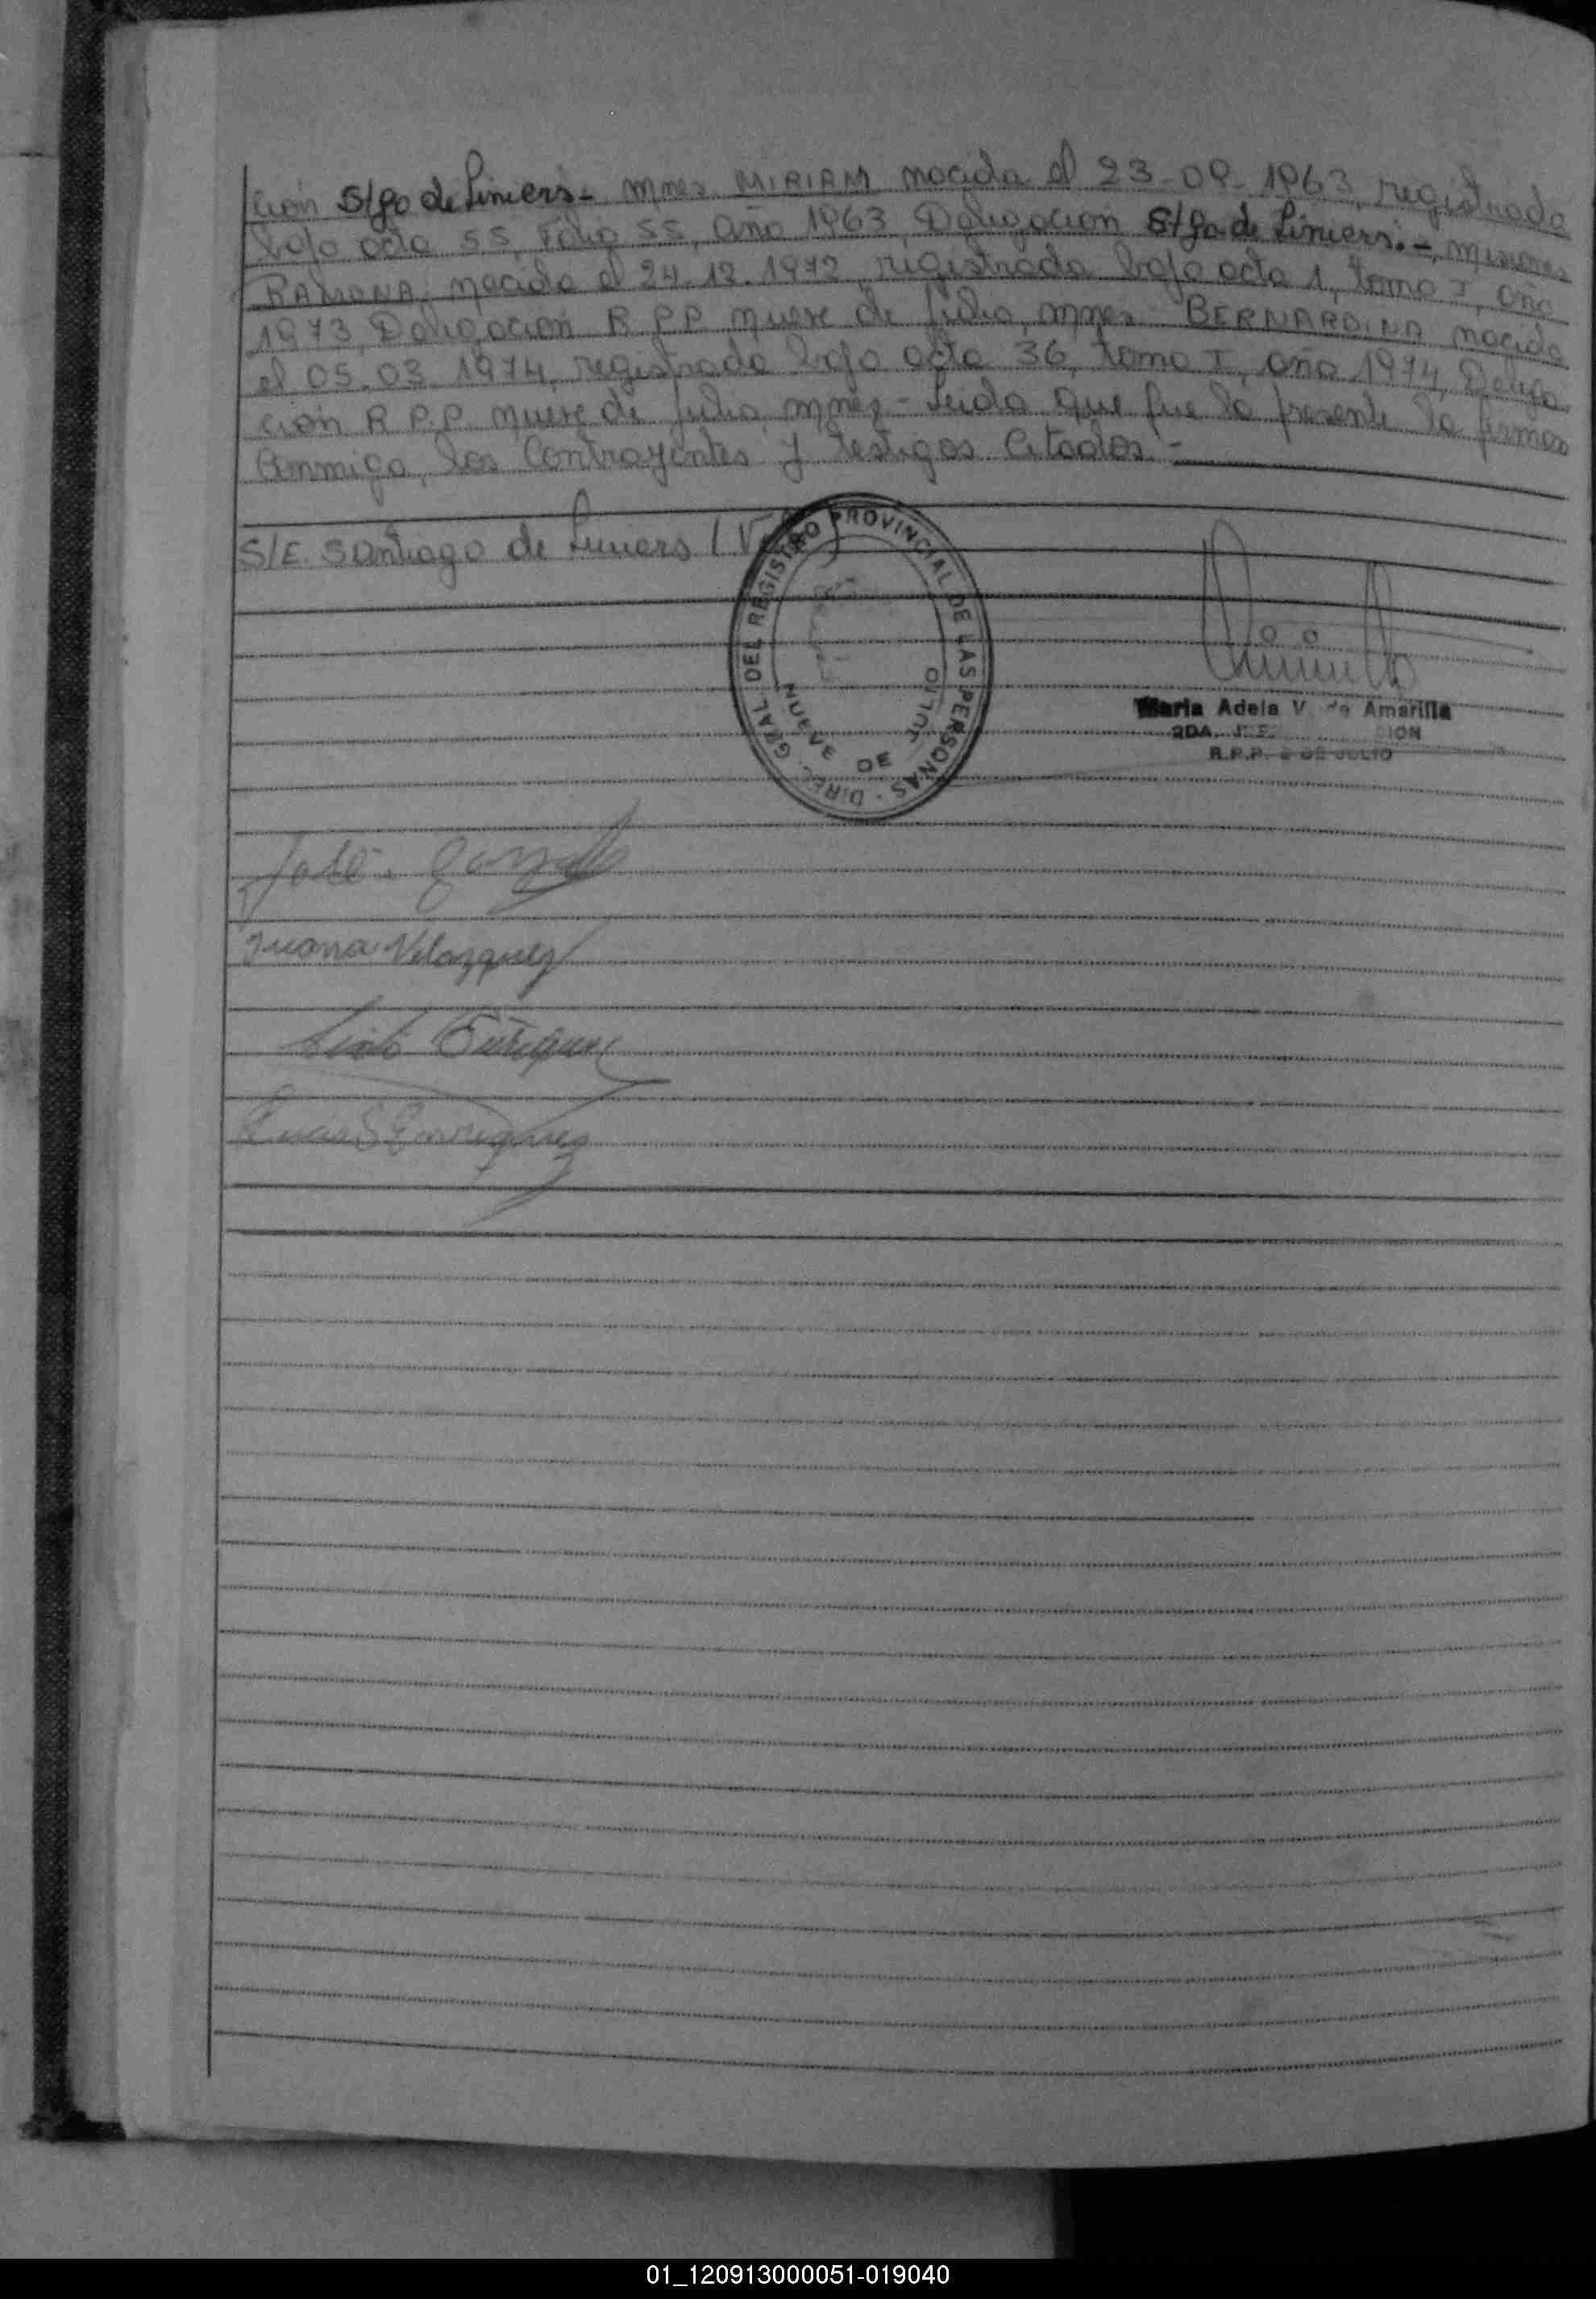 ción S/go de Liniers - Mnes. MIRIAM nacida el 23-09-1963, registrada
bajo acta 55, Folio 55, año 1963, Delegación S/go de Liniers. -, Misiones
RAMONA, nacida el 24.12.1972, registrada bajo acta 1, tomo I, año
1973, Delegación R.P.P nueve de Julio, Mnes. BERNARDINA nacida
el 05.03.1974, registrada bajo acta 36, tomo I, año 1974, Delega-
ción R.P.P. nueve de Julio, Mnes - Leida que fue la presente la firman
Conmigo, los Contrayentes y testigos Citados. -
S/E. Santiago de Liniers (V
DIREC. GRAL. DEL REGISTRO PROVINCIAL DE LAS PERSONAS
NUEVE DE JULIO
Maria Adela V. de Amarilla
R.P.P. 9 DE JULIO
José
Juana Velazquez
Enriquez
Lucas S Enriquez
01_120913000051-019040